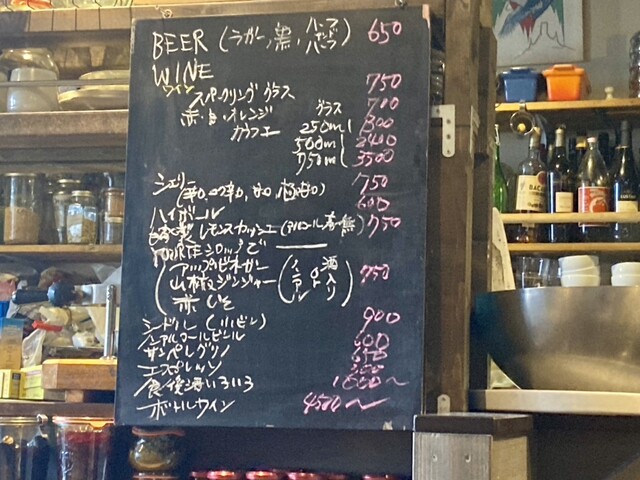 BEER (ラガー、黒、ハーフ&ハーフ) 650
WINE
ワイン
スパークリング グラス 750
赤・白・オレンジ グラス 700
カラフェ 250ml
500ml 2400
750ml 3500
シェリー 750
ハイボール 600
自家製レモンスカッシュ (アルコール有・無) 750
シロップで
アップルビネガー
山村's ジンジャー (ノンアル or 酒入り) 750
赤しそ
シードル (小ビン) 900
ノンアルコールビール 600
サンペレグリノ 650
エスプレッソ 300
食後酒いろいろ 1000〜
ボトルワイン 4500〜
BACA